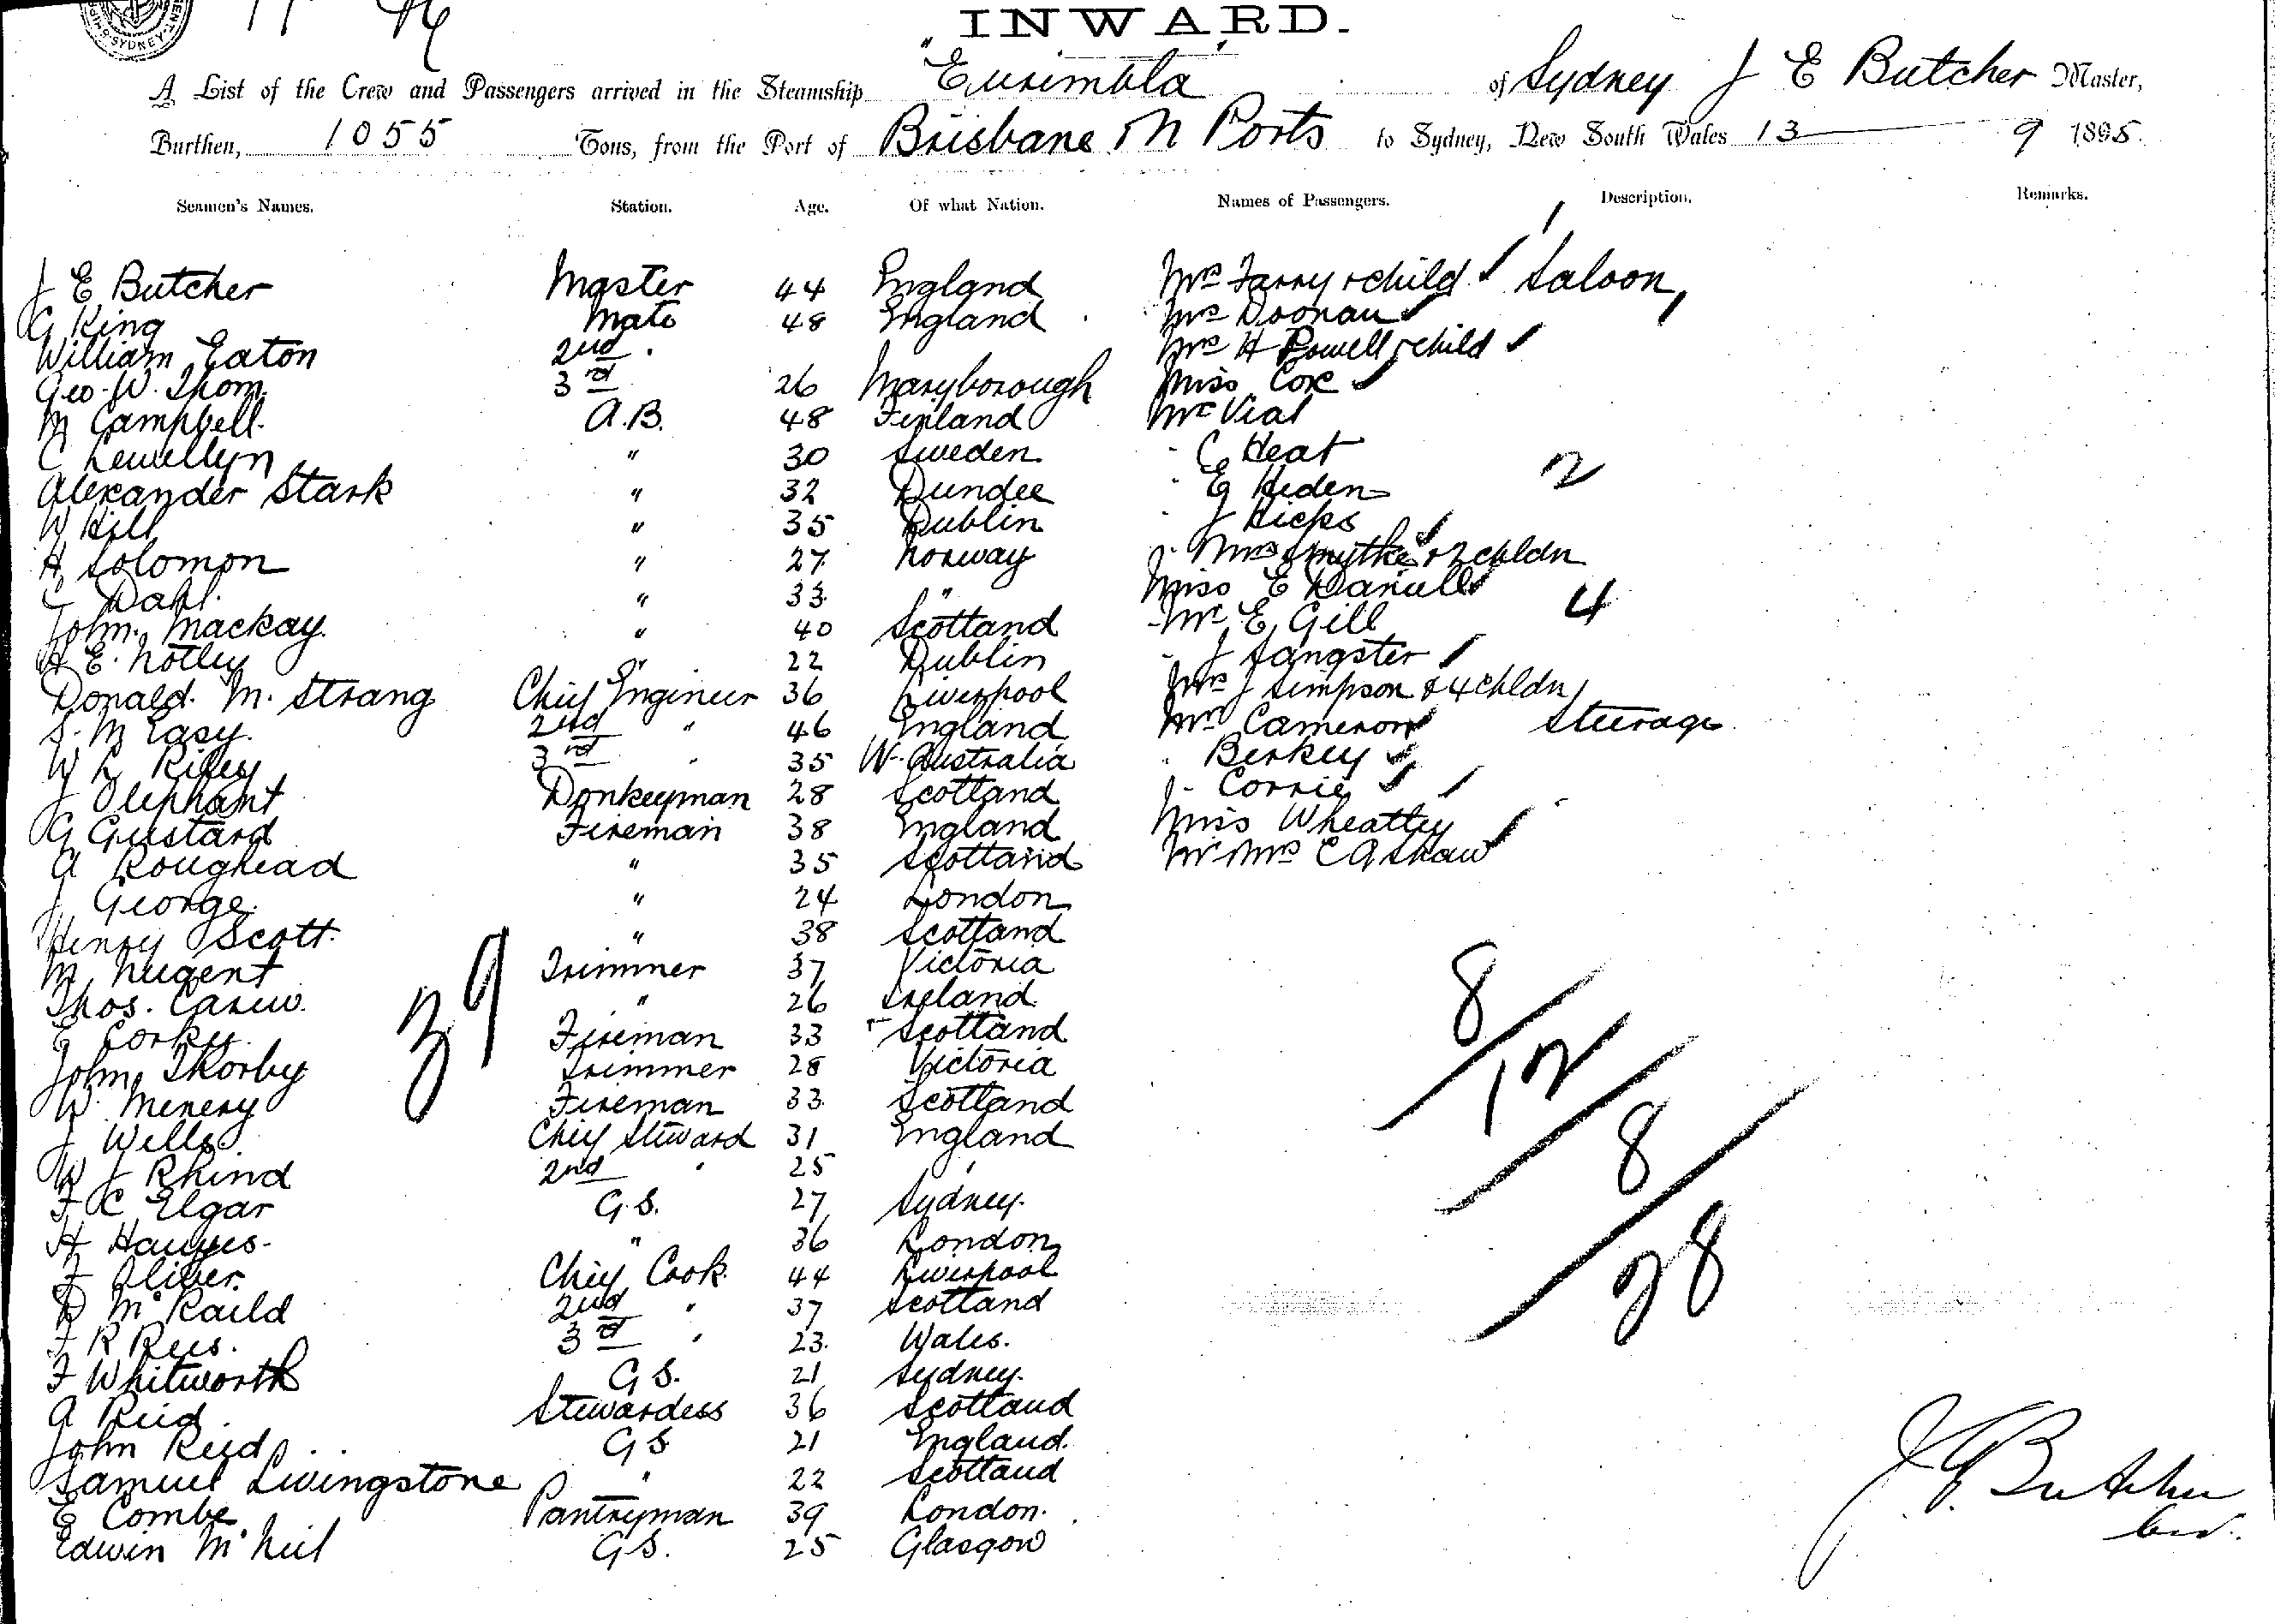 SYDNEY
INWARD.
A List of the Crew and Passengers arrived in the Steamship "Eurimbla" of Sydney J E Butcher Master,
Burthen, 1055 Tons, from the Port of Brisbane & N Ports to Sydney, New South Wales 13 9 1895.
Seamen's Names. Station. Age. Of what Nation. Names of Passengers. Description. Remarks.
J E Butcher Master 44 England Mrs Farry & child Saloon
G King Mate 48 England Mrs Doonan
William Eaton 2nd " Mrs H Powell & child
Geo. W. Thom 3rd 26 Maryborough Miss Cox
M Campbell A.B. 48 Finland Mr Vial
C Lewellyn " 30 Sweden " C Heat
Alexander Stark " 32 Dundee " E Heden 2
W Hill " 35 Dublin " J Hicks
H Solomon " 27 Norway Mrs Smythe & 2 chldn
C Dahl " 33 " Miss E Daniell
John Mackay " 40 Scotland Mr E Gill 4
A E. Notley " 22 Dublin " J Sangster
Donald M. Strang Chief Engineer 36 Liverpool Mrs J Simpson & 4 chldn
S. M Easy 2nd " 46 England Mr Cameron Steerage
W L Riley 3rd " 35 W. Australia " Berkey
J Oliphant Donkeyman 28 Scotland " Corrie
G Gustard Fireman 38 England Miss Wheatley
A Roughead " 35 Scotland Mr Mrs C A Shaw
J George " 24 London
Henry Scott " 38 Scotland
M Nugent Trimmer 37 Victoria
Thos. Carew " 26 Ireland
E Corky Fireman 33 Scotland
John Skorby Trimmer 28 Victoria
W Menery Fireman 33 Scotland
J Wells Chief Steward 31 England
W J Rhind 2nd " 25 "
F C Elgar G.S. 27 Sydney
H Hauges " 36 London
F Oliver Chief Cook 44 Liverpool
D McKaild 2nd " 37 Scotland
F R Rees 3rd " 23 Wales.
F Whitworth G S. 21 Sydney
A Reid Stewardess 36 Scotland
John Reid G S 21 England
Samuel Livingstone " 22 Scotland
E Combe Pantryman 39 London
Edwin McNeil G S. 25 Glasgow
39
8/12/8/28
J E Butcher